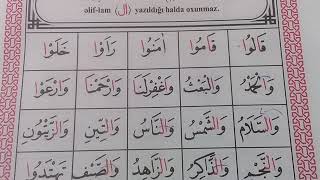 əlif-lam (ال) yazıldığı halda oxunmaz.
قَالُوا قَامُوا اٰمَنُوا رَاَوْا خَلَوْا
وَالْحَمْدُ وَالْبَعْثُ وَاغْفِرْلَنَا وَارْحَمْنَا وَارْعَوْا
وَالسَّلَامُ وَالشَّمْسُ وَالنَّاسُ وَالتِّينِ وَالزَّيْتُونِ
وَالنَّجْمِ وَالذَّاكِرِ وَالزَّاهِدِ وَالصَّيْفِ تَهْتَدُوا